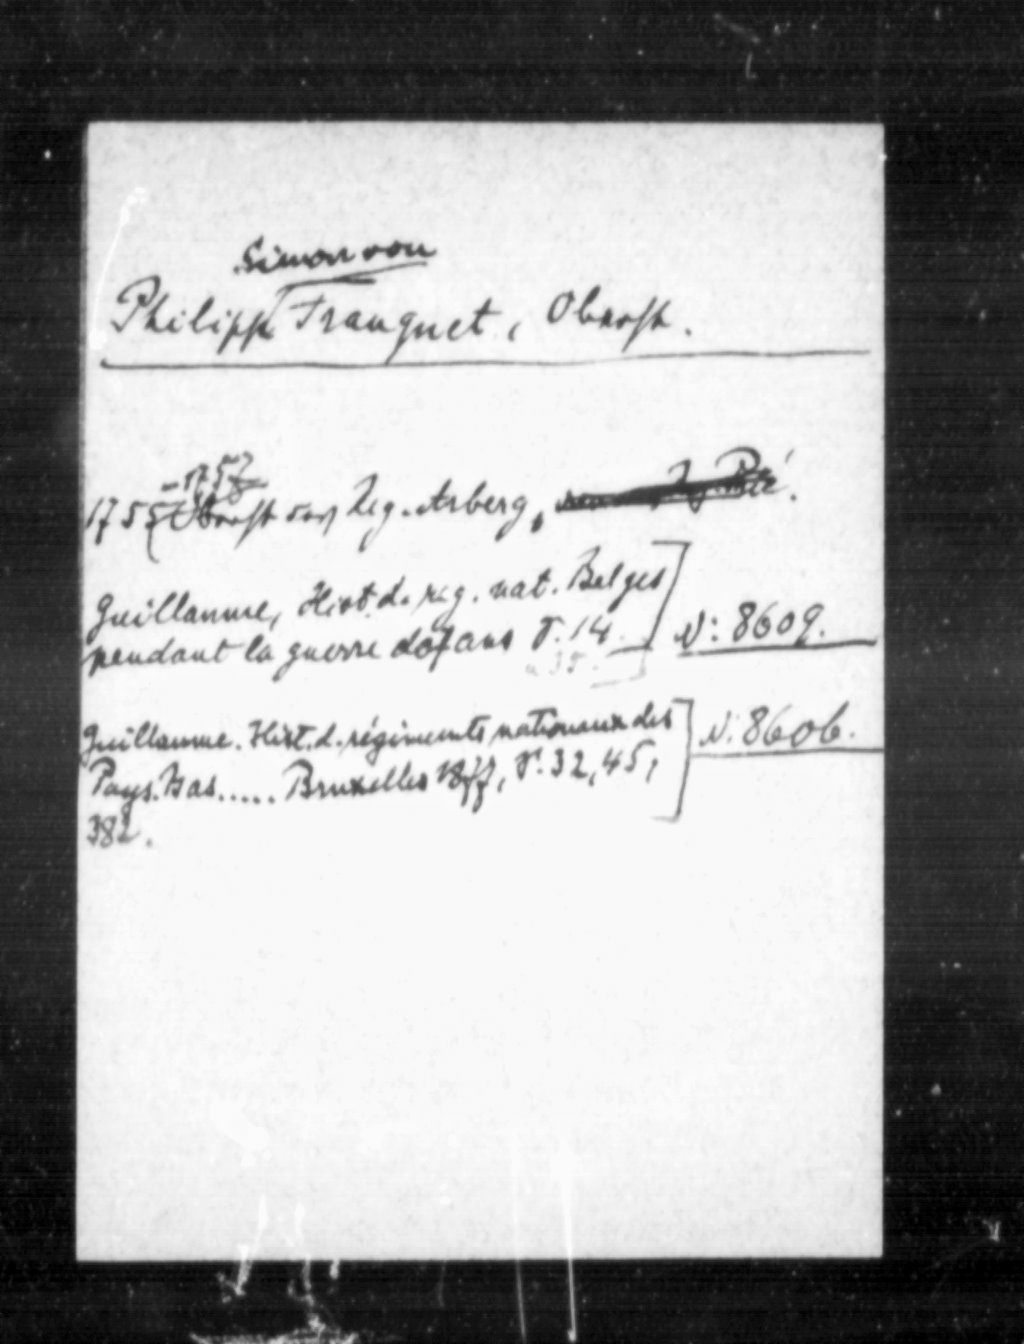 Simon von
Philipp Franquet, Oberst.
-1757
1755 Oberst Reg. Arberg,
Guillaume, Hist. d. reg. nat. Belges
pendant la guerre de 7 ans S. 14.
u. 35.
N: 8609.
Guillaume. Hist. d. régiments nationaux des
Pays-Bas..... Bruxelles 1877, S. 32, 45,
382.
N: 8606.